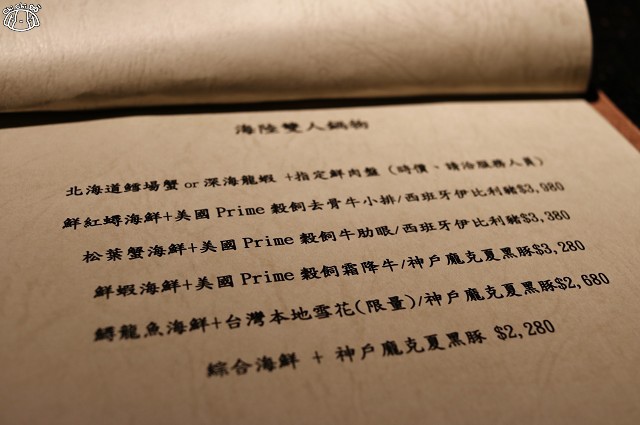 海陸雙人鍋物
北海道鱈場蟹 or 深海龍蝦 +指定鮮肉盤 (時價、請洽服務人員)
鮮紅蟳海鮮+美國 Prime 穀飼去骨牛小排/西班牙伊比利豬$3,980
松葉蟹海鮮+美國 Prime 穀飼牛肋眼/西班牙伊比利豬$3,380
鮮蝦海鮮+美國 Prime 穀飼霜降牛/神戶龐克夏黑豚$3,280
鱘龍魚海鮮+台灣本地雪花(限量)/神戶龐克夏黑豚$2,680
綜合海鮮 + 神戶龐克夏黑豚 $2,280